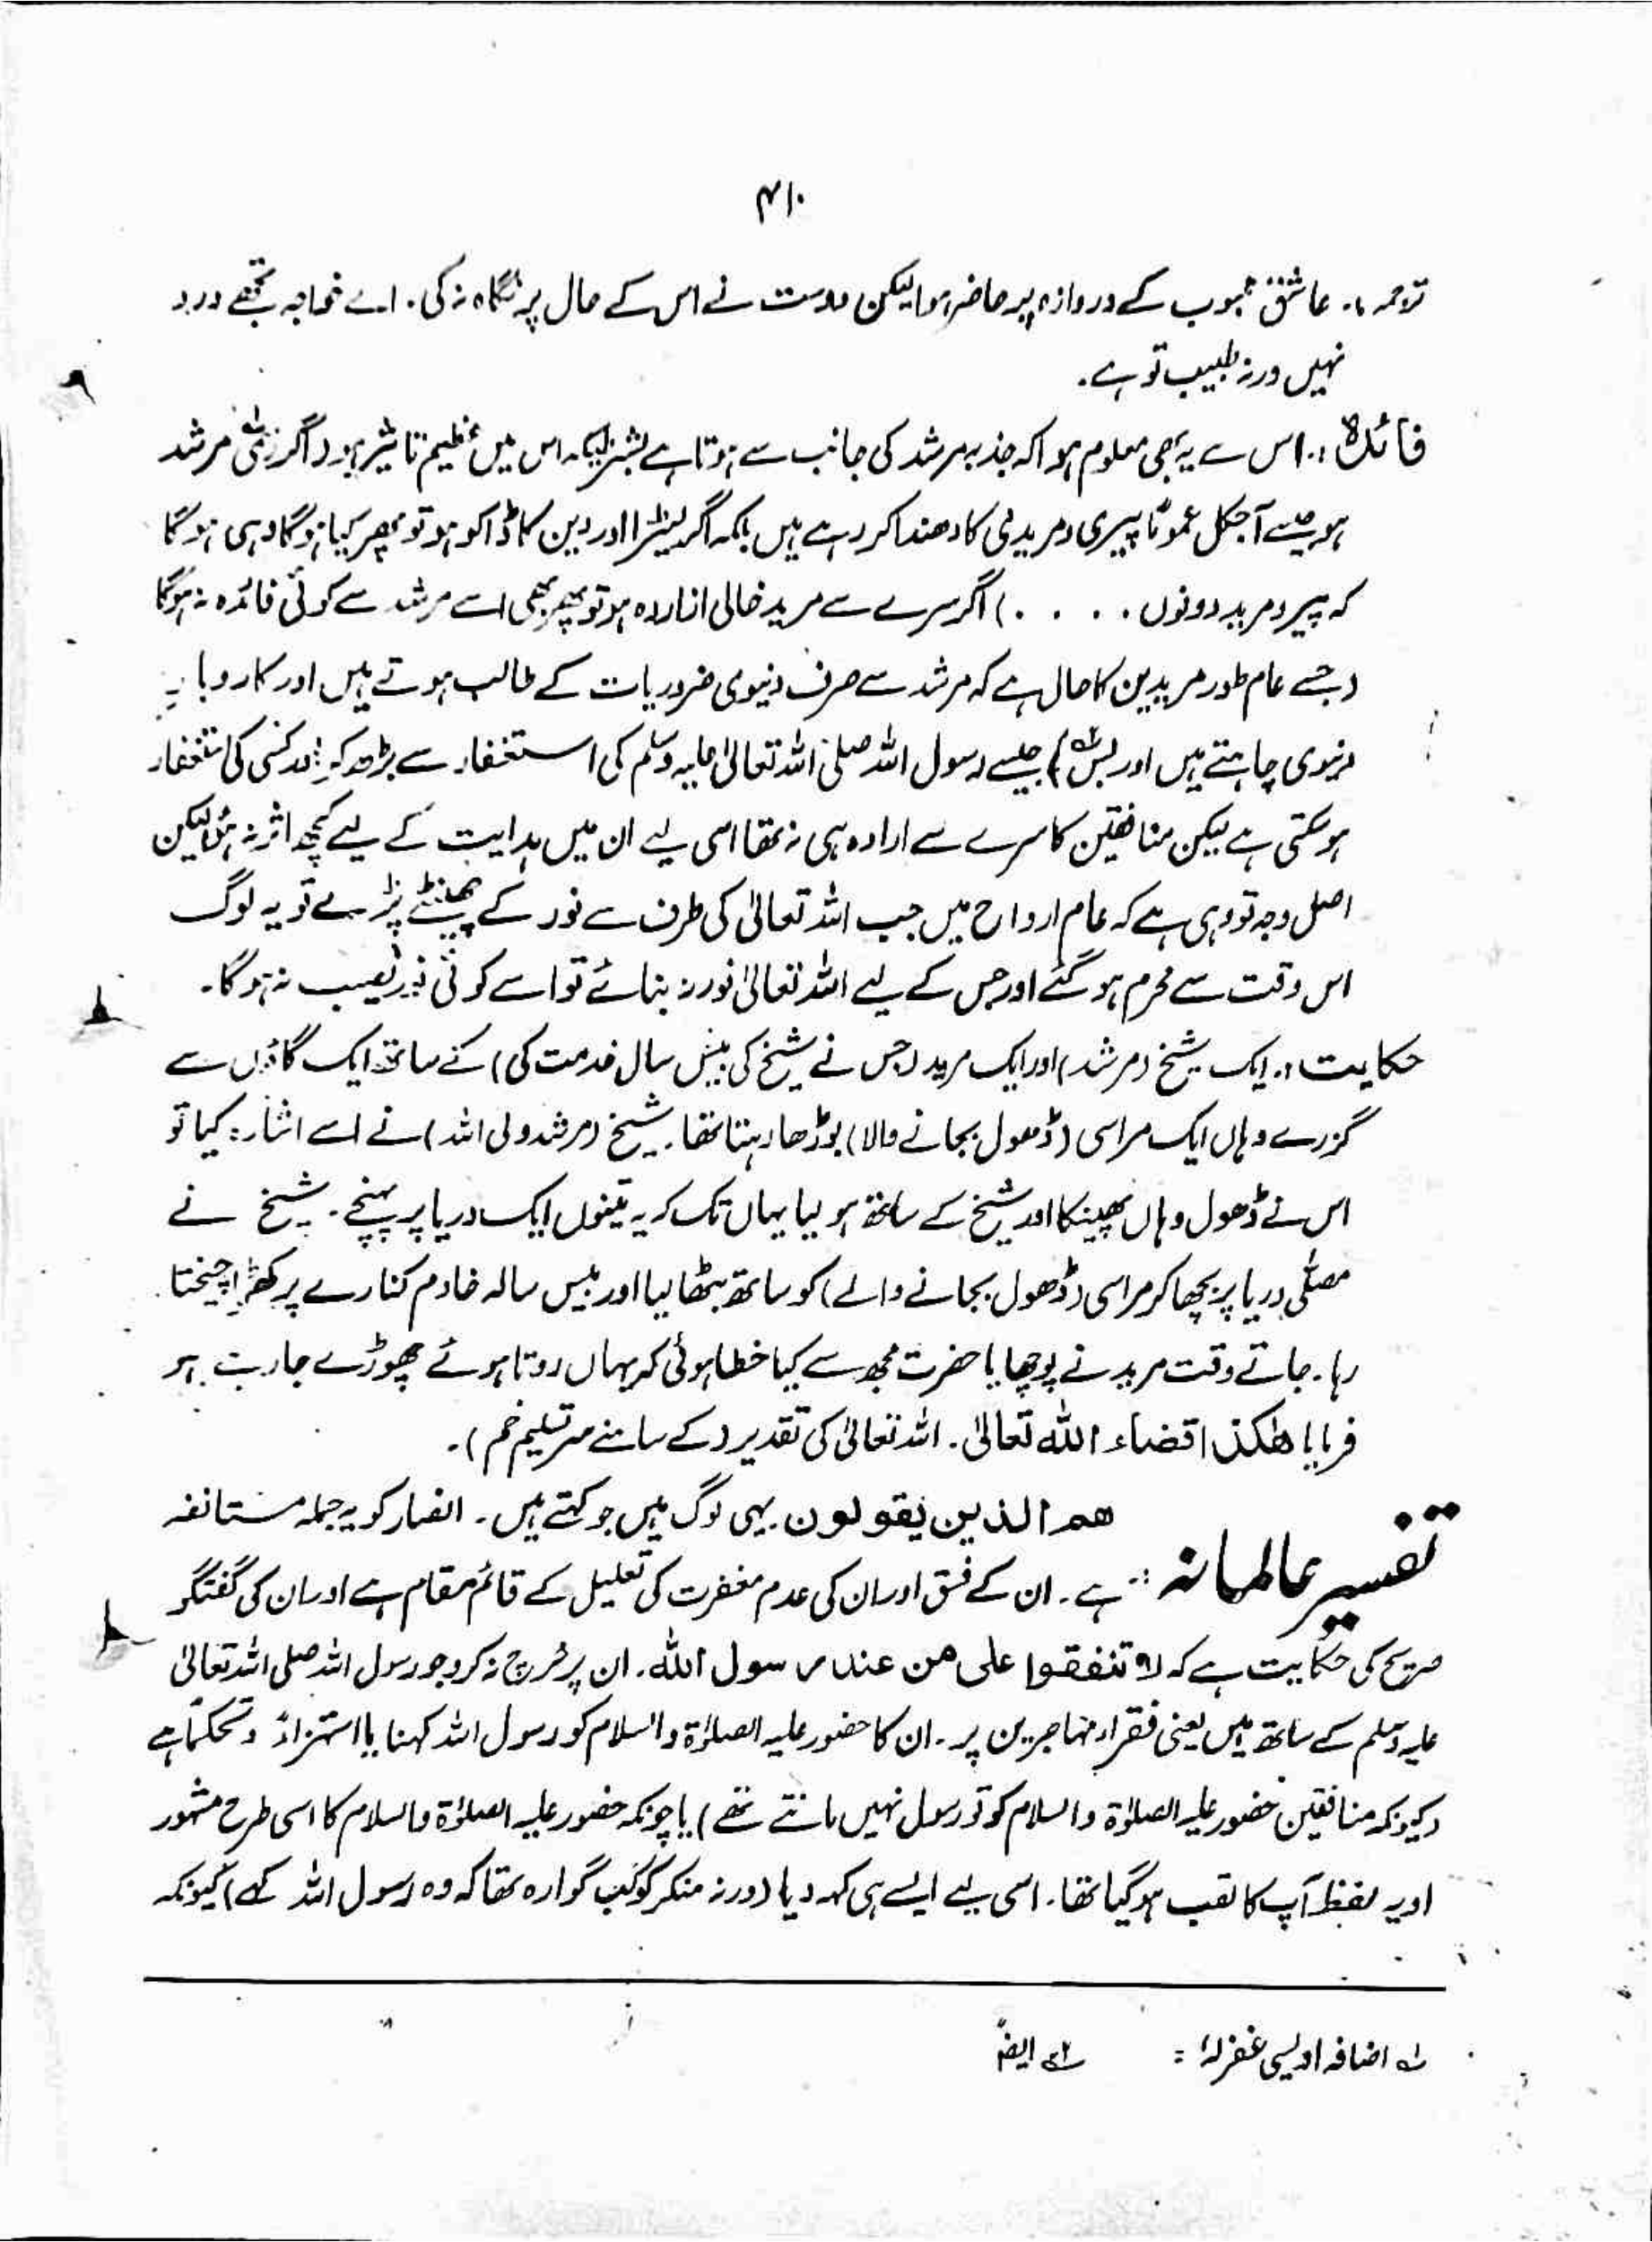 ۴۱۰
ترجمہ :۔ عاشق محبوب کے دروازہ پر حاضر ہوا لیکن دوست نے اس کے حال پر نگاہ نہ کی ۔ اے خواجہ تجھے درد
نہیں ورنہ طبیب تو ہے ۔
فائدہ :۔ اس سے یہ بھی معلوم ہوا کہ جذبہ مرشد کی جانب سے ہوتا ہے بشرطیکہ اس میں عظیم تاثیر ہو (اگر رسمی مرشد
ہو جیسے آجکل عموماً پیری و مریدی کا دھندا کر رہے ہیں بلکہ اگر لیٹرا اور دین کا ڈاکو ہو تو پھر کیا ہوگا وہی ہوگا
کہ پیر و مرید دونوں . . . . ) اگر سرے سے مرید خالی از ارادہ ہو تو پھر بھی اسے مرشد سے کوئی فائدہ نہ ہوگا
(جسے عام طور مریدین کا حال ہے کہ مرشد سے صرف دنیوی ضروریات کے طالب ہوتے ہیں اور کاروبار
دنیوی چاہتے ہیں اور بس ۲ے) جیسے رسول اللہ صلی اللہ تعالیٰ علیہ وسلم کی استغفار سے بڑھ کر اور کس کی استغفار
ہو سکتی ہے لیکن منافقین کا سرے سے ارادہ ہی نہ تھا اسی لیے ان میں ہدایت کے لیے کچھ اثر نہ ہوا لیکن
اصل وجہ تو وہی ہے کہ عام ارواح میں جب اللہ تعالیٰ کی طرف سے نور کے چھینٹے پڑے تو یہ لوگ
اس وقت سے محرم ہو گئے اور جس کے لیے اللہ تعالیٰ نور نہ بنائے تو اسے کوئی نور نصیب نہ ہوگا ۔
حکایت :۔ ایک شیخ (مرشد) اور ایک مرید (جس نے شیخ کی بیس سال خدمت کی) کے ساتھ ایک گاؤں سے
گزرے وہاں ایک مراسی (ڈھول بجانے والا) بوڑھا رہتا تھا ۔ شیخ (مرشد ولی اللہ) نے اسے اشارہ کیا تو
اس نے ڈھول وہاں پھینکا اور شیخ کے ساتھ ہو لیا یہاں تک کہ یہ تینوں ایک دریا پر پہنچے ۔ شیخ نے
مصلّٰی دریا پر بچھا کر مراسی (ڈھول بجانے والے) کو ساتھ بٹھا لیا اور بیس سالہ خادم کنارے پر کھڑا چیختا
رہا ۔ جاتے وقت مرید نے پوچھا یا حضرت مجھ سے کیا خطا ہوئی کہ یہاں روتا ہوئے چھوڑے جا رہے ہو
فرمایا ھٰکذا قضاء اللہ تعالیٰ ۔ اللہ تعالیٰ کی تقدیر (کے سامنے سر تسلیم خم) ۔
ھم الذین یقولون یہی لوگ ہیں جو کہتے ہیں ۔ انصار کو یہ جملہ مستانفہ
تفسیر عالمانہ :۔ ہے ۔ ان کے فسق اور ان کی عدم مغفرت کی تعلیل کے قائم مقام ہے اور ان کی گفتگو
صریح کی حکایت ہے کہ لا تنفقوا علی من عند رسول اللہ ۔ ان پر خرچ نہ کرو جو رسول اللہ صلی اللہ تعالیٰ
علیہ وسلم کے ساتھ ہیں یعنی فقراء مہاجرین پر ۔ ان کا حضور علیہ الصلوٰۃ والسلام کو رسول اللہ کہنا یا استہزاءً و تحکماً ہے
(کیونکہ منافقین حضور علیہ الصلوٰۃ والسلام کو تو رسول نہیں مانتے تھے) یا چونکہ حضور علیہ الصلوٰۃ والسلام کا اسی طرح مشہور
اور یہ لفظ آپ کا لقب ہو گیا تھا ۔ اسی لیے ایسے ہی کہہ دیا (ورنہ منکر کو کب گوارہ تھا کہ وہ رسول اللہ کہے) کیونکہ
۱ے اضافہ اویسی غفرلہٗ = ۲ے ایضاً